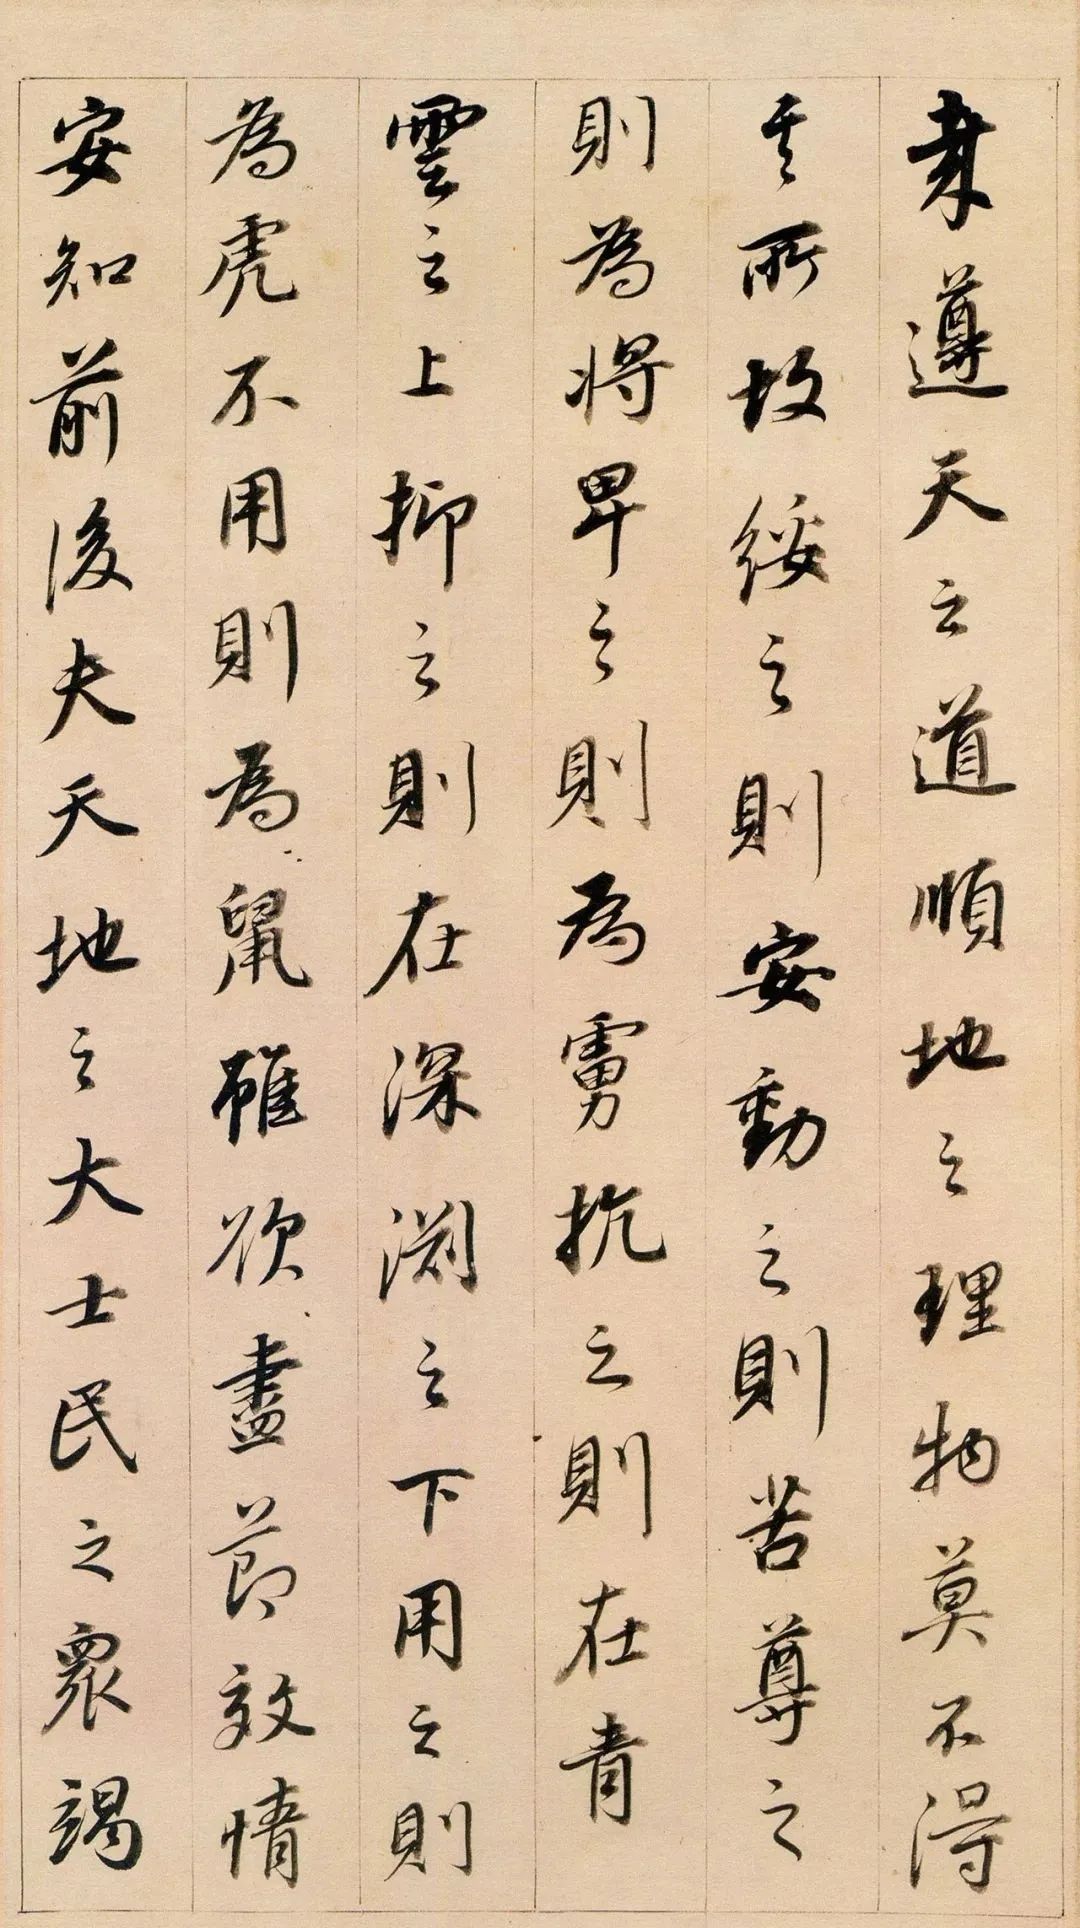 聿遵天之道順地之理物莫不得
其所故綏之則安動之則苦尊之
則為將卑之則為虜抗之則在青
雲之上抑之則在深淵之下用之則
為虎不用則為鼠雖欲盡節效情
安知前後夫天地之大士民之眾竭